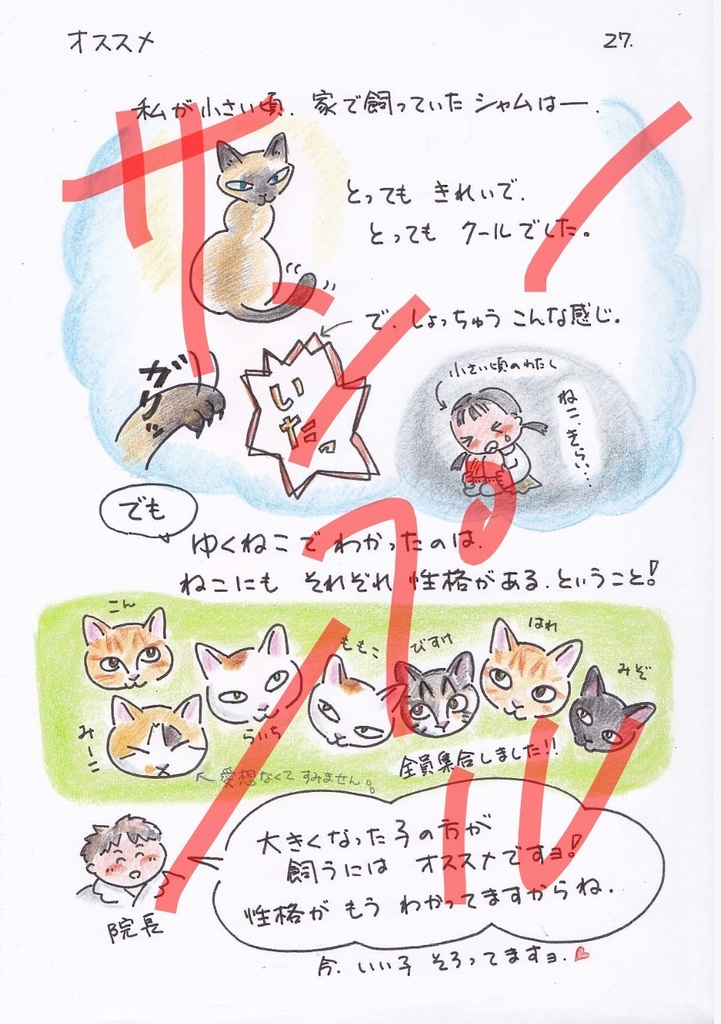 オススメ
27.
私が小さい頃、家で飼っていたシャムはー.
とっても きれいで、
とっても クールでした。
で、しょっちゅう こんな感じ。
ガリッ
いたっ
小さい頃のわたし
ねこ、きらい…
でも
ゆくねこで わかったのは、
ねこにも それぞれ 性格がある、ということ!
こん
みーこ
らいち
ももこ
びすけ
はれ
みぞ
愛想なくてすみません。
全員集合しました!!
大きくなった子の方が
飼うには オススメですョ!
性格が もう わかってますからね.
院長
今、いい子 そろってますョ.
サンプル